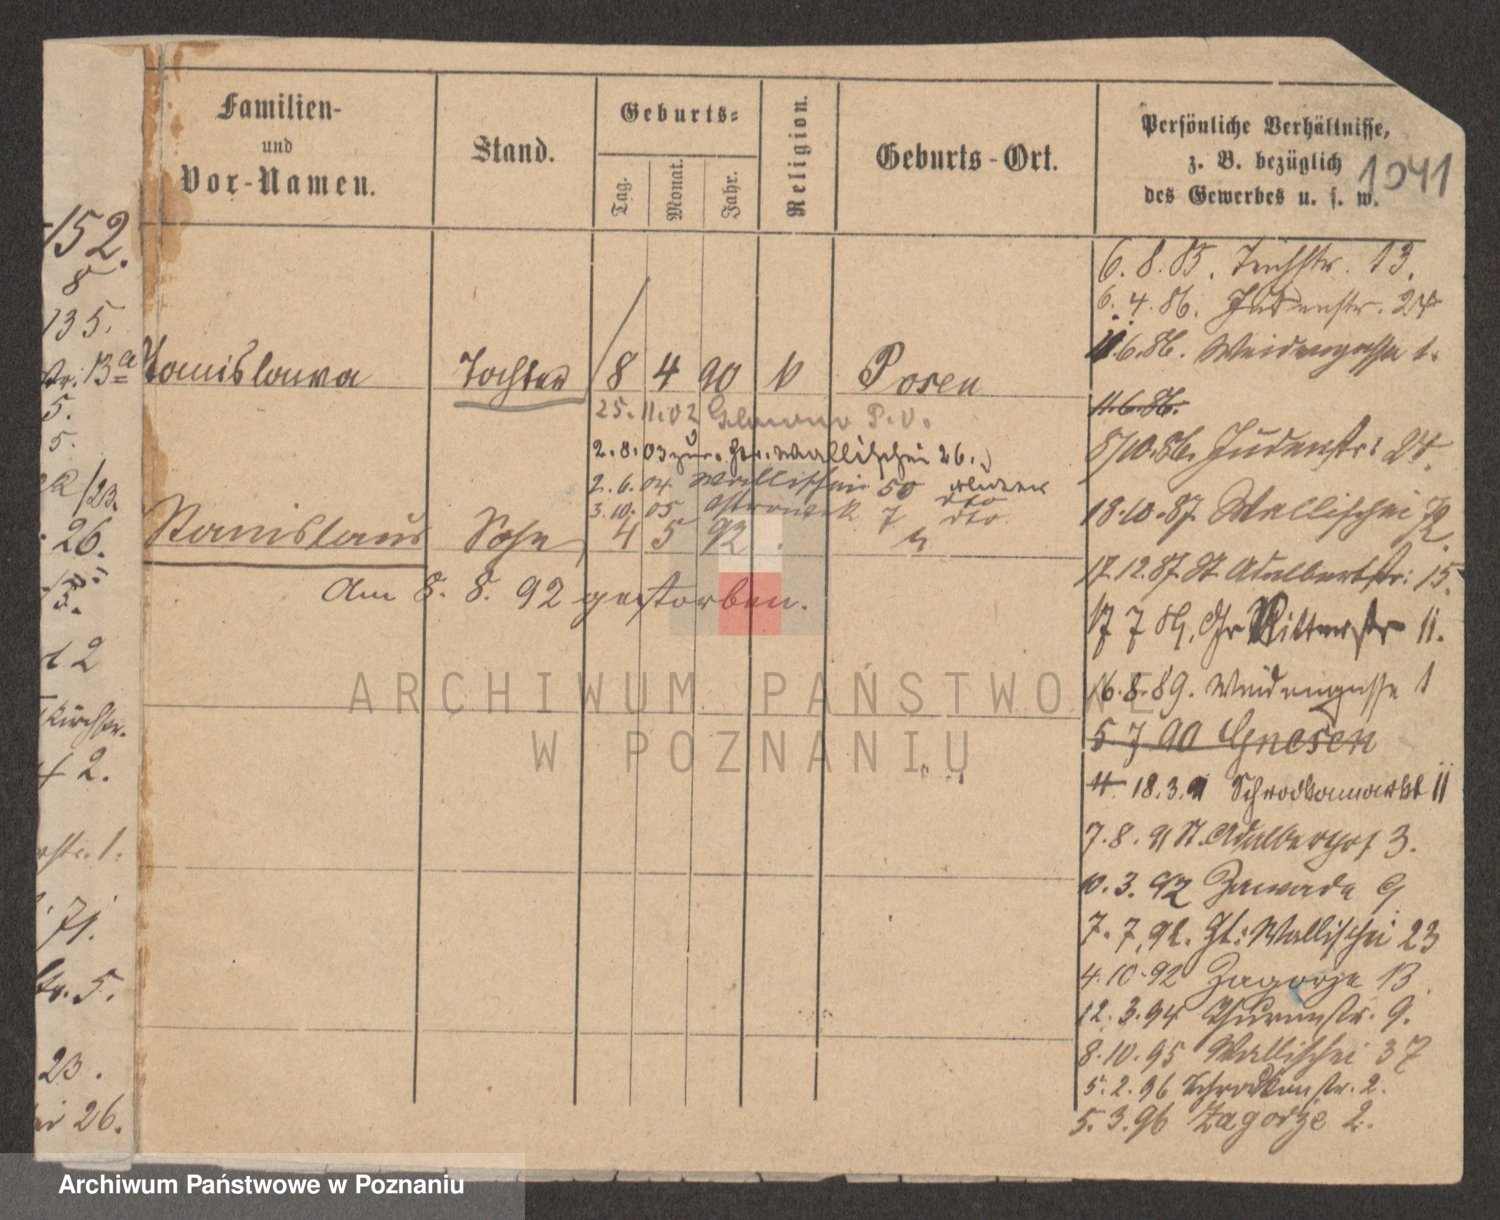 Familien-
und
Vor-Namen.
Stand.
Geburts-
Tag.
Monat.
Jahr.
Religion.
Geburts-Ort.
Persönliche Verhältnisse,
z. B. bezüglich
des Gewerbes u. s. w.
1041
152.
8
135.
str. 13a
5.
5.
/23
26.
15.
2
Kirchstr.
2.
str. 1.
71.
str. 5.
23.
26.
Stanislawa Tochter 8 4 90 k Posen
25.11.02 Glowno P.O.
2.8.03 zur. Gr. Wallischei 26.
2.6.04 Wallischei 50
3.10.05 Ostrowek 7 dto
Stanislaus Sohn 4 5 92 "
Am 8. 8. 92 gestorben.
6.8.85. Teichstr. 13.
6.4.86. Judenstr. 24
11.6.86. Weidengasse 1.
11.6.86.
8/10.86. Judenstr: 24.
18.10.87 Wallischei
17.12.87 St Adalbertstr: 15.
17 7 89. Gr Ritterstr 11.
16.8.89. Weidengasse 1
5 7 90 Gnesen
11. 18.3.91 Schrodkamarkt 11
7.8.91 St. Adalberthof 3.
10.3.92 Zawade 9
7.7.92. Gr: Wallischei 23
4.10.92 Zagorze 13.
12.3.94 Thurmstr. 9.
8.10.95 Wallischei 37
5.2.96 Schrodkastr. 2.
5.3.96 Zagorze 2.
ARCHIWUM PAŃSTWOWE
W POZNANIU
Archiwum Państwowe w Poznaniu